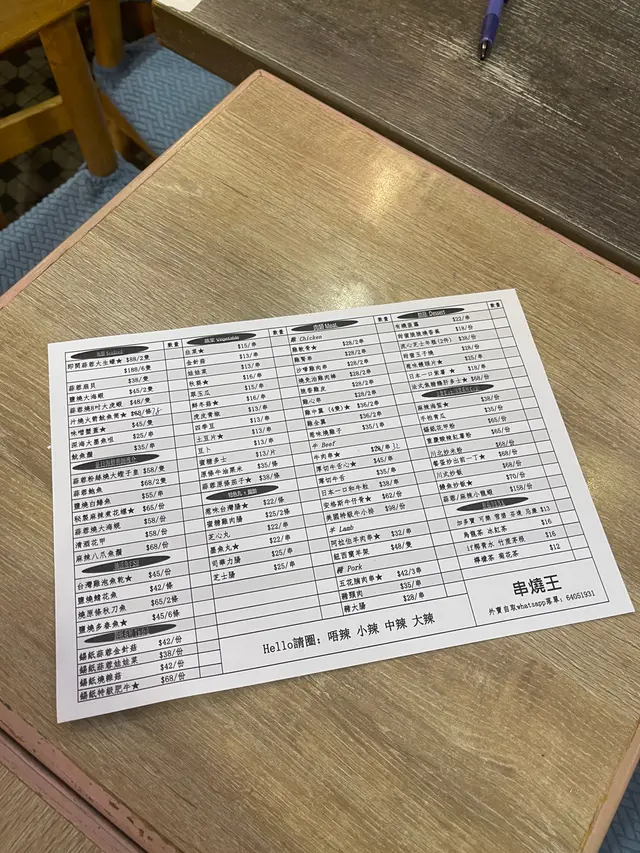 海鮮 Seafood 數量
即開蒜蓉大生蠔★ $88/2隻
$188/6隻
蒜蓉扇貝 $38/隻
鹽燒大海蝦 $45/2隻
蒜蓉燒8吋大虎蝦 $48/隻
片燒火箭魷魚筒★ $68/條 78
味噌蟹蓋★ $45/隻
深海大墨魚咀 $25/串
魷魚鬚 $35/串
蒜蓉粉絲燒大蟶子皇 $58/隻
蒜蓉鮑魚 $68/2隻
鹽燒白鱔魚 $55/串
秘製麻辣煮花螺★ $65/份
蒜蓉燒大海蜆 $55/份
清酒花甲 $58/份
麻辣八爪魚鬚 $68/份
台灣雞泡魚乾★ $45/份
鹽燒鱈花魚 $42/條
燒原條秋刀魚 $65/2條
鹽燒多春魚★ $45/6條
錫紙蒜蓉金針菇 $42/份
錫紙蒜蓉娃娃菜 $38/份
錫紙燒雜菇 $42/份
錫紙特級肥牛★ $68/份
蔬菜 Vegetable 數量
韭菜★ $15/串
金針菇 $13/串
娃娃菜 $13/串
秋葵★ $16/串
翠玉瓜 $15/串
鮮冬菇★ $16/串
虎皮青椒 $13/串
四季豆 $13/串
土豆片★ $13/串
豆卜 $13/串
蜜糖多士 $13/片
原條牛油粟米 $35/條
蒜蓉原條茄子★ $38/條
惹味台灣腸★ $22/條
蜜糖雞肉腸 $25/2條
芝心丸 $22/串
墨魚丸★ $22/串
司華力腸 $25/串
芝士腸 $25/串
肉類 Meat 數量
雞 Chicken
雞軟骨★ $28/2串
雞腎串 $28/2串
沙嗲雞肉串 $28/2串
燒免治雞肉棒 $28/2串
燒香雞皮 $28/2串
雞心串 $28/2串
雞中翼 (6隻)★ $36/2串
雞全翼 $36/2串
惹味燒雞子 $35/1串
牛 Beef
牛肉串★ 32
厚切牛舌心★ $45/串
薄切牛舌 $35/串
日本一口和牛粒 $38/串
安格斯牛仔骨★ $62/份
美國特級牛小排 $98/份
羊 Lamb
阿拉伯羊肉串★ $32/串
紐西蘭羊架 $48/隻
豬 Pork
五花腩肉串★ $42/3串
豬頸肉 $35/串
豬大腸 $28/串
甜品 Dessert 數量
$22/串
$18/份
$38/份
甜蜜玉子燒 $28/份
$25/串
日本一口栗薯★ $18/串
法式焦糖雜肝多士★ $68/份
麻辣海蜇★ $38/份
手拍青瓜 $35/份
錫紙花甲粉 $65/份
重慶酸辣紅薯粉 $65/份
川北炒米粉 $65/份
餐蛋炒出前一丁★ $68/份
川式炒飯 $68/份
鰻魚炒飯★ $70/份
蒜蓉/麻辣小龍蝦 $158/份
加多寶 可樂 雪碧 茶儀 忌廉 $13
烏龍茶 冰紅茶 $16
if椰青水 竹蔗茅根 $16
檸檬茶 菊花茶 $12
Hello請圈: 唔辣 小辣 中辣 大辣
串燒王
外賣自取whatsapp落單: 64051931